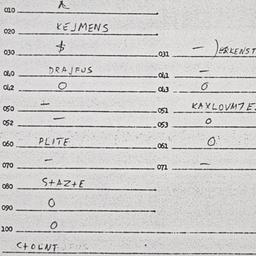 010 k
020 KEJMENS
030 $ 031 — )ERKENST
040 DRAJFUS 041 —
042 O 043 O
050 + 051 KAXLOVMTE
052 — 053 O
060 PLITE 061 O
070 — 071 —
080 S+AZ+E
090 O
100 O
C+OLNT